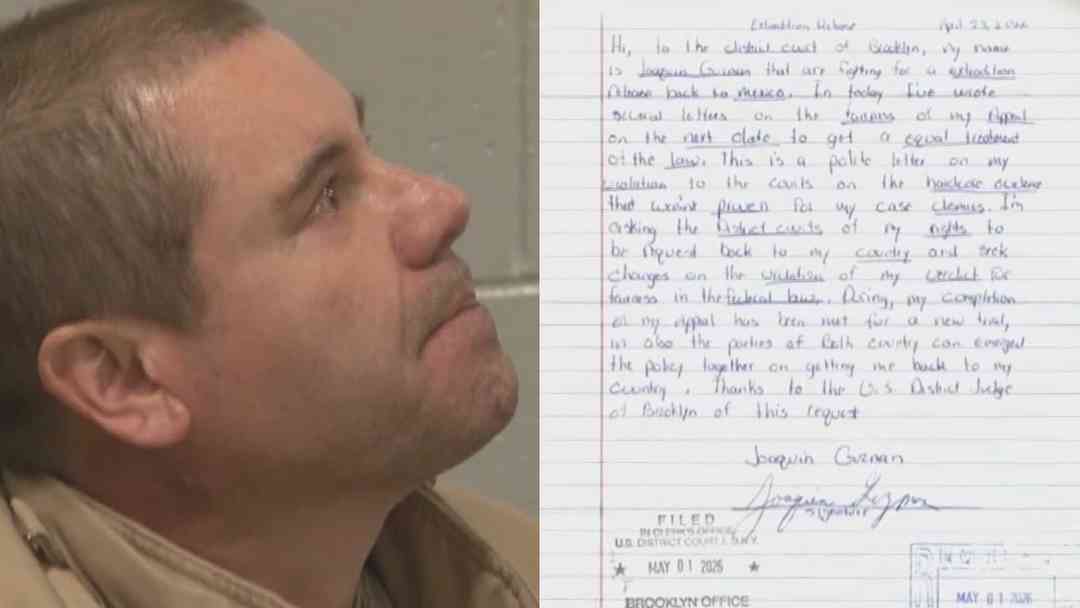 Extradition Release April 23, 2026
Hi, to the district court of Brooklyn, my name
is Joaquin Guzman that are fighting for a extradition
release back to mexico. In today I've wrote
several letters on the fairness of my Appeal
on the next date to get a equal treatment
of the law. This is a polite letter on my
violation to the courts on the hardcore evidence
that wasn't proven for my case clemus. I'm
asking the District courts of my rights to
be request back to my country and seek
changes on the violation of my verdict for
fairness in the federal law. During, my completion
of my Appeal has been met for a new trial,
in also the parties of Both country can emerged
the policy together on getting me back to my
country. Thanks to the U.S. District Judge
of Brooklyn of this request
Joaquin Guzman
signature
FILED
IN CLERK'S OFFICE
U.S. DISTRICT COURT E.D.N.Y.
★ MAY 01 2026 ★
BROOKLYN OFFICE
MAY 01 2026